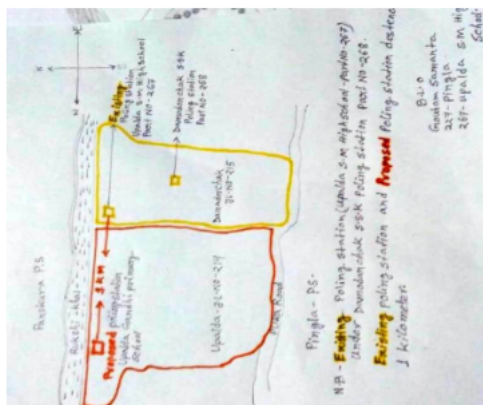 Panskura P.S
Rakshi-khal
Existing
Poling station
Upalda S.M High school
Part No-267
Damodanchak S.S.K
Poling station
Part No-268
Damodanchak
JL-NO-215
1 KM
Proposed poling station
Upalda Gandhi primary
School
Upalda-JL-NO-214
Road
Pingla-P.S-
N.B-Existing Poling station (Upalda S.M High school-part No-267)
Under Damodanchak S.S.K Poling station Part No-268.
Existing poling station and Proposed Poling station
1 kilometer
B.L.O
Goutam Samanta
227-Pingla
267-Upalda S.M High
School